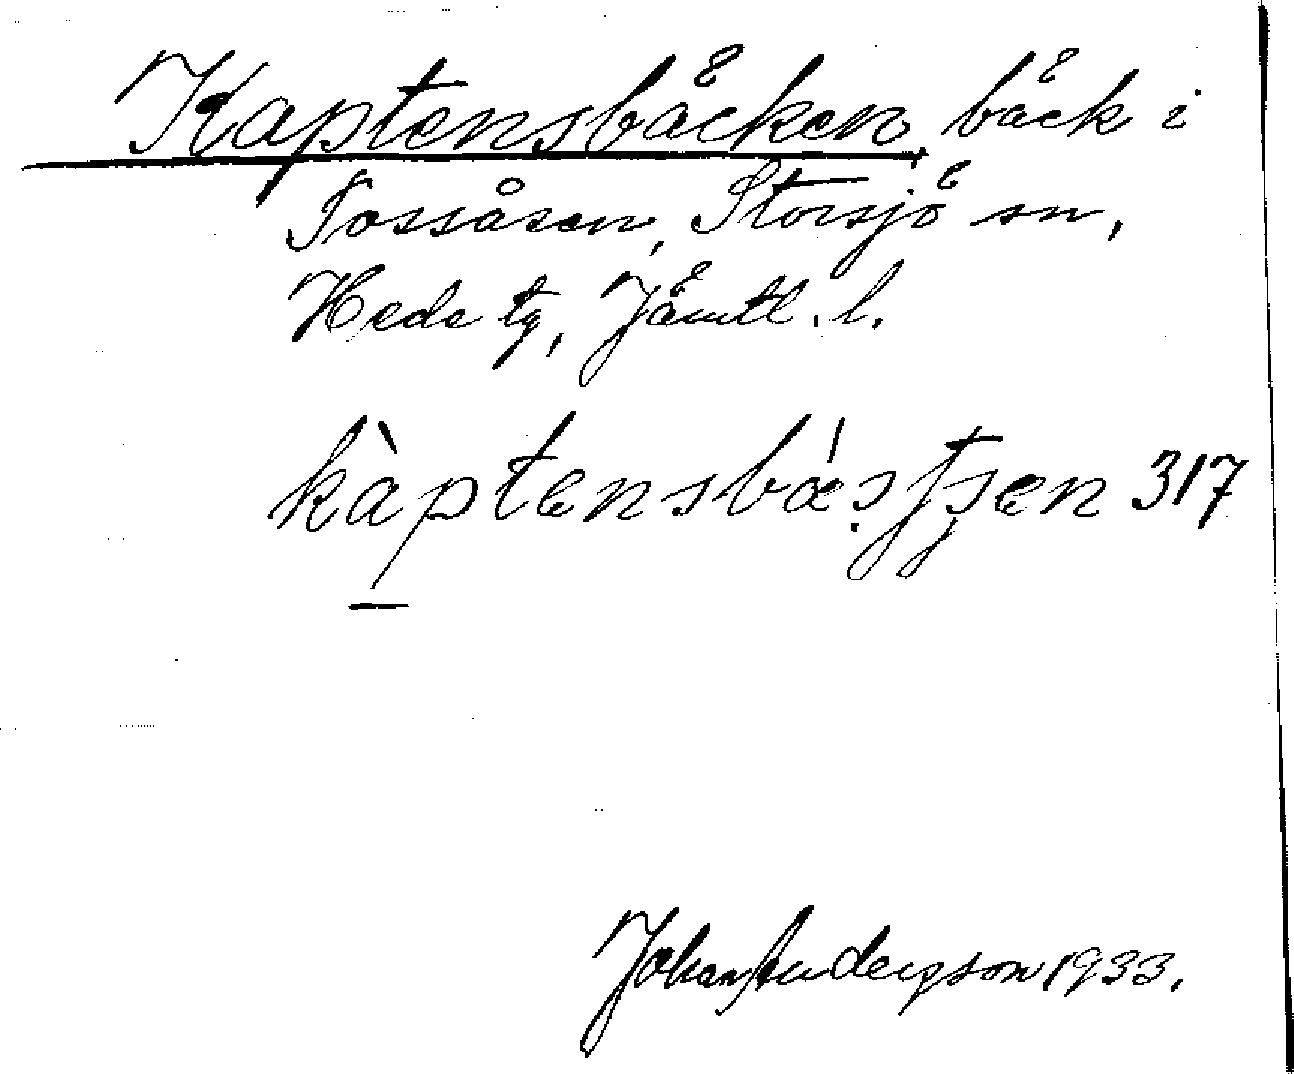 Kaptensbäcken, bäck i
Tossåsen, Storsjö sn,
Hede tg, Jämtl. l.
317
Johan Andersson 1933.